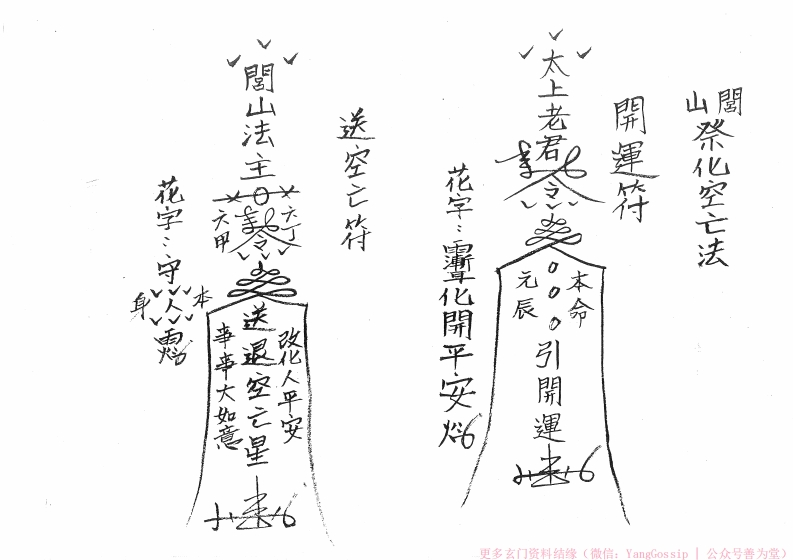 閭山祭化空亡法
開運符
太上老君
令
本命
元辰
引開運
花字：化開平安
送空亡符
閭山法主
六丁
六甲
令
改化人平安
送退空亡星
事事大如意
花字：守
本人身
更多玄门资料结缘（微信：YangGossip | 公众号善为堂）